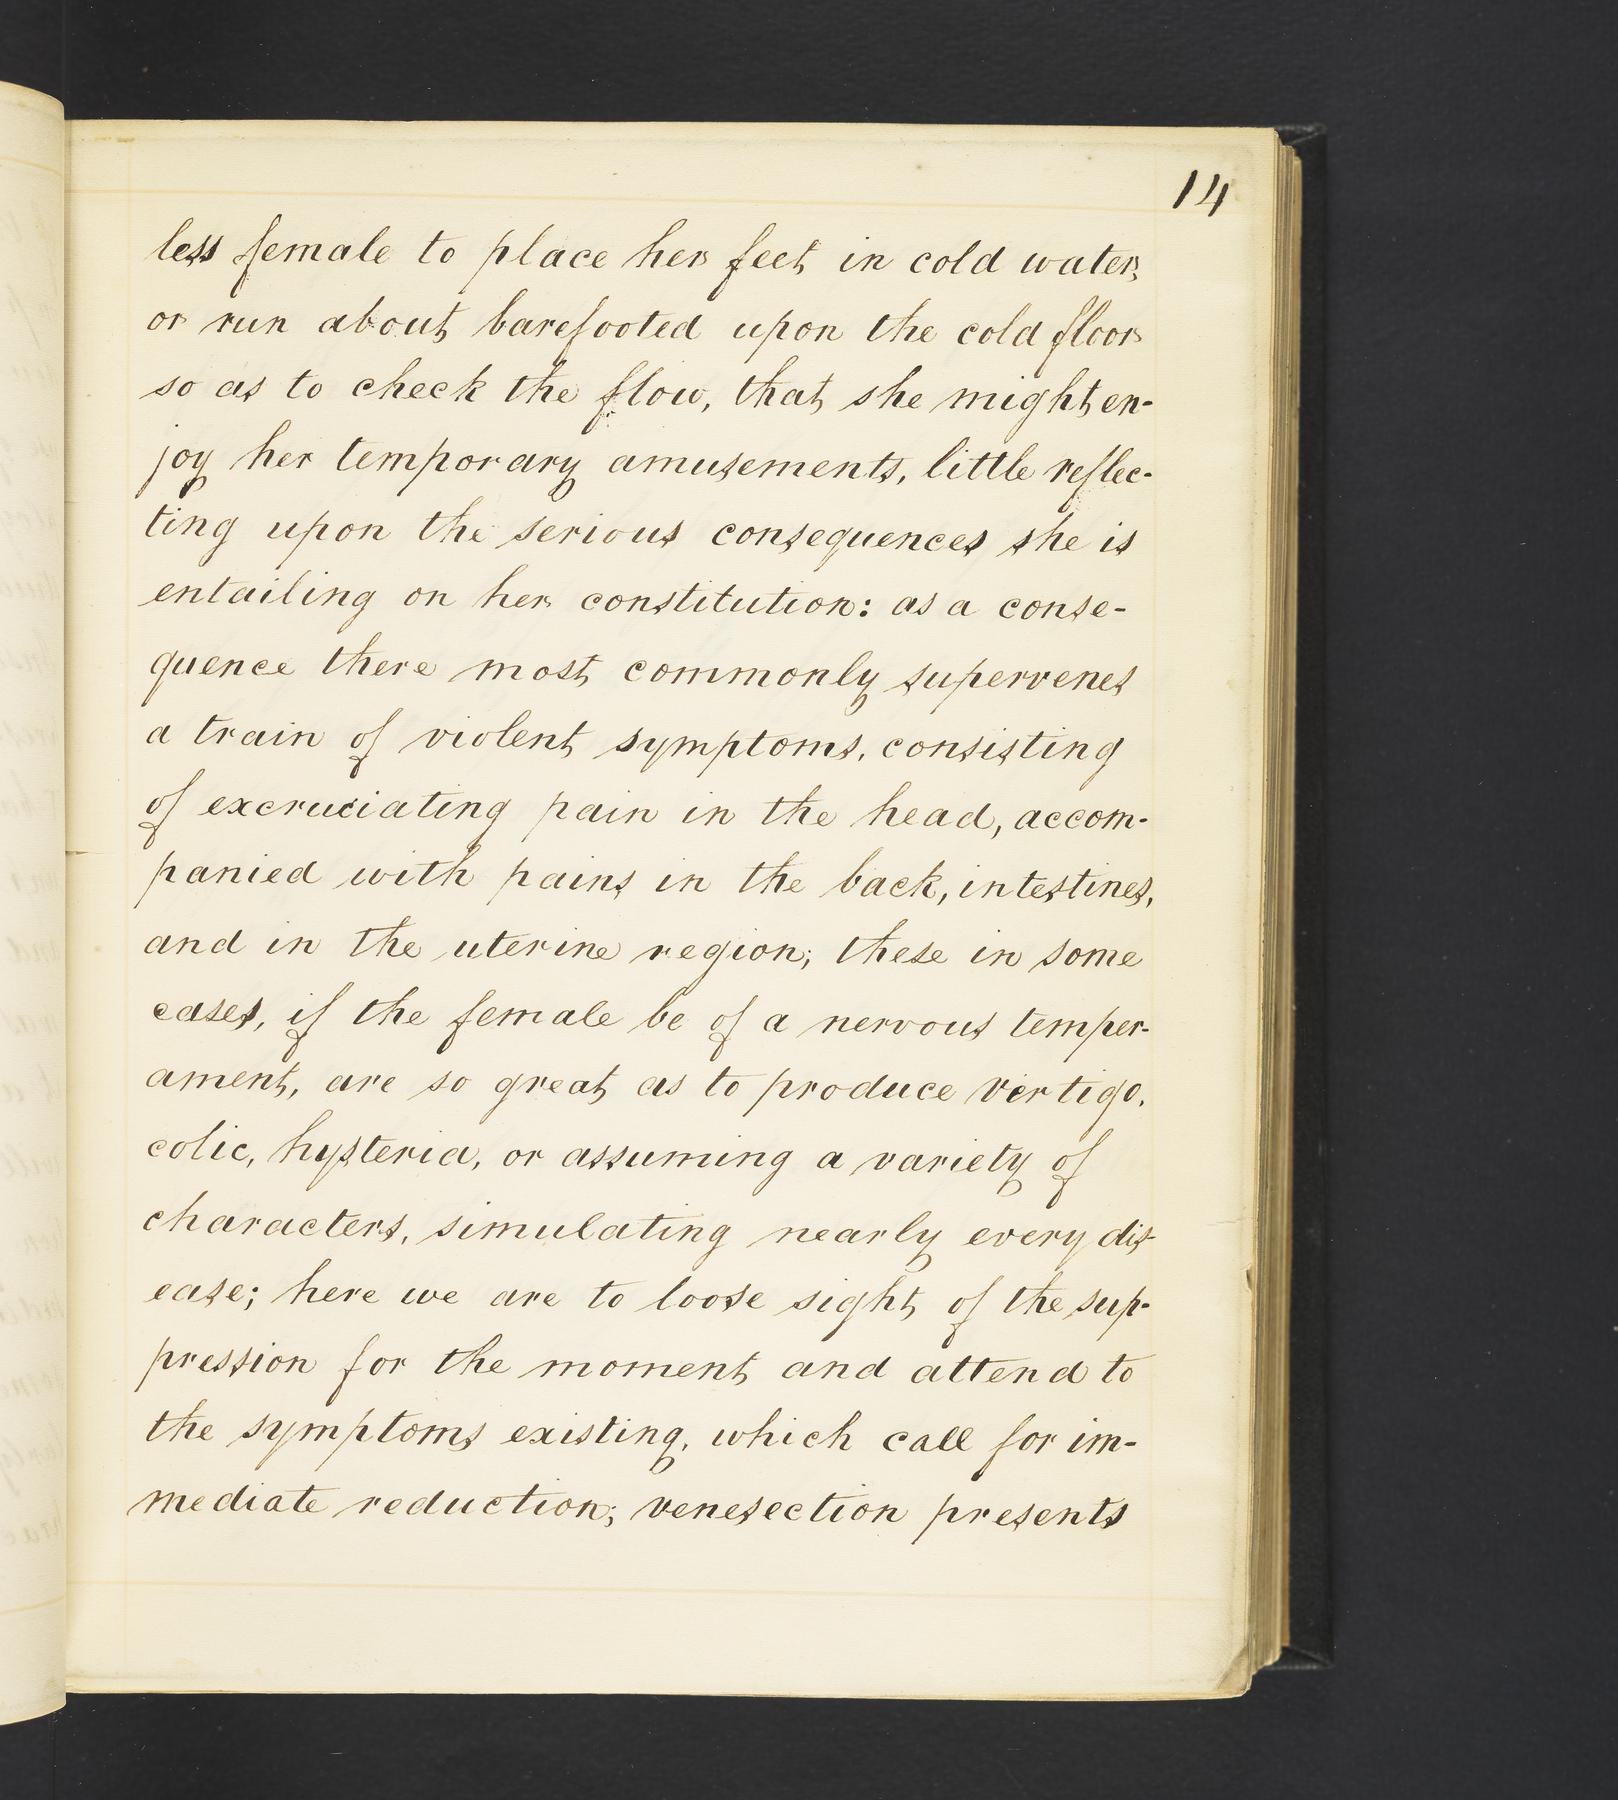 14
less female to place her feet in cold water,
or run about barefooted upon the cold floor
so as to check the flow, that she might en-
joy her temporary amusements, little reflec-
ting upon the serious consequences she is
entailing on her constitution: as a conse-
quence there most commonly supervenes
a train of violent symptoms, consisting
of excruciating pain in the head, accom-
panied with pains in the back, intestines,
and in the uterine region; these in some
cases, if the female be of a nervous temper-
ament, are so great as to produce vertigo,
colic, hysteria, or assuming a variety of
characters, simulating nearly every dis-
ease; here we are to loose sight of the sup-
pression for the moment and attend to
the symptoms existing, which call for im-
mediate reduction; venesection presents